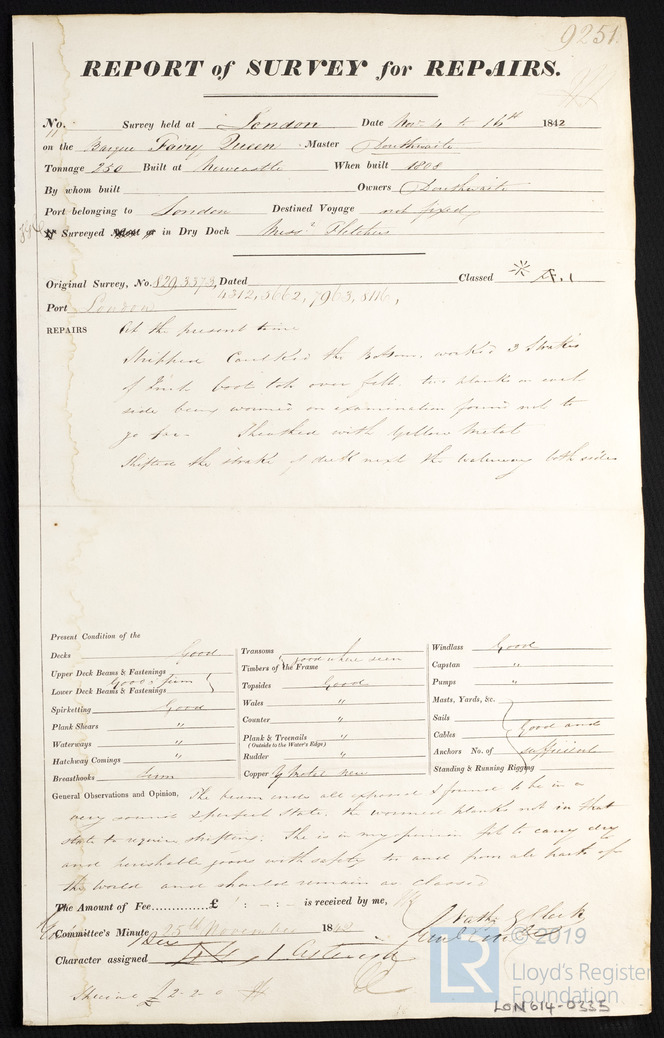 9251
REPORT of SURVEY for REPAIRS.
No. Survey held at London Date Nov 4 to 16th 1842
on the Barque Fairy Queen Master Douthwaite
Tonnage 250 Built at Newcastle When built 1808
By whom built Owners Douthwaite
Port belonging to London Destined Voyage not fixed
Surveyed in Dry Dock Messrs Fletchers
Original Survey, No. 829, 3373, Dated Classed A.1
4312, 5662, 7963, 8116,
Port London
REPAIRS At the present time
Stripped Caulked the Bottom, worked 3 Strakes
of Inch boot top over felt. two planks on each
side being wormed on examination found not to
go far Sheathed with Yellow Metal
Shifted the strake of deck next the waterway both sides
Present Condition of the
Decks Good
Upper Deck Beams & Fastenings
Good & firm
Lower Deck Beams & Fastenings
Spirketting Good
Plank Shears "
Waterways "
Hatchway Comings "
Breasthooks firm
Transoms
good where seen
Timbers of the Frame
Topsides Good
Wales "
Counter "
Plank & Treenails "
(Outside to the Water's Edge)
Rudder "
Copper Y Metal new
Windlass Good
Capstan "
Pumps "
Masts, Yards, &c.
Sails
Good and
Cables
Anchors No. of sufficient
Standing & Running Rigging
General Observations and Opinion, The beam ends all exposed I found to be in a
very sound & perfect state. the wormed planks not in that
state to require shifting. She is in my opinion fit to carry dry
and perishable goods with safety to and from all parts of
the world and should remain as classed
The Amount of Fee............£ : - : - is received by me,
Committee's Minute 25th November 1842
Character assigned
Special £2-2-0
© 2019
Lloyd's Register
Foundation
LR
LON614-0335